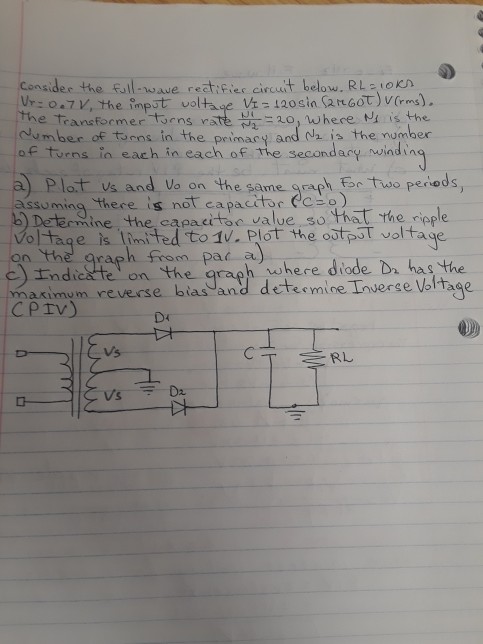 Consider the full-wave rectifier circuit below. RL = 10KΩ
Vr = 0.7V, the imput voltage VI = 120sin (2π60T) V(rms).
The Transformer Turns rate N1/N2 = 20, where N1 is the
Number of turns in the primary and N2 is the number
of turns in each in each of the secondary winding
a) Plot Vs and Vo on the same graph for two periods,
assuming there is not capacitor (C=0)
b) Determine the capacitor value so that the ripple
Voltage is limited to 1V. Plot the output voltage
on the graph from par a)
c) Indicate on the graph where diode D2 has the
maximum reverse bias and determine Inverse Voltage
(PIV)
D1
Vs
C
RL
Vs
D2